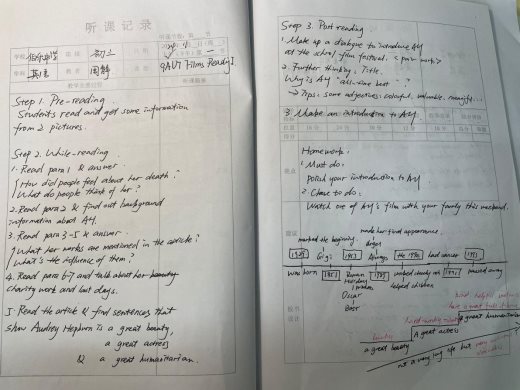 听课记录
学校
班级 初三
日期
学科 英语
教者 周群
课题 9AU7 Films Reading I
教学主要过程
听课随感
Step 1. Pre-reading.
Students read and get some information
from 2 pictures.
Step 2. While-reading
1. Read para 1 & answer.
How did people feel about her death?
What do people think of her?
2. Read para 2 & find out background
information about AH.
3. Read para 3-5 & answer.
What her works are mentioned in the article?
What's the influence of them?
4. Read para 6-7 and talk about her beauty
charity work and last days.
5 Read the article & find sentences that
show Audrey Hepburn is a great beauty,
a great actress
& a great humanitarian.
Step 3. Post reading
1. Make up a dialogue to introduce AH
at the school film festival. <pair work>
2. Further thinking. Title.
Why is AH "all-time best"
→ Tips: some adjectives: colourful, valuable, meaningful...
3. Make an introduction to AH.
Homework:
1. Must do:
Polish your introduction to AH
2. Choose to do:
Watch one of AH's film with your family this weekend.
made her final appearance.
marked the beginning
1929 Gigi 1953 Always the 1990s had cancer 1993
was born 1951 Roman Holiday 1989 worked closely on 1992 passed away
helped children
Oscar
Best
hard-working
a great humanitarian
A great actress
a great beauty
not a very long life but